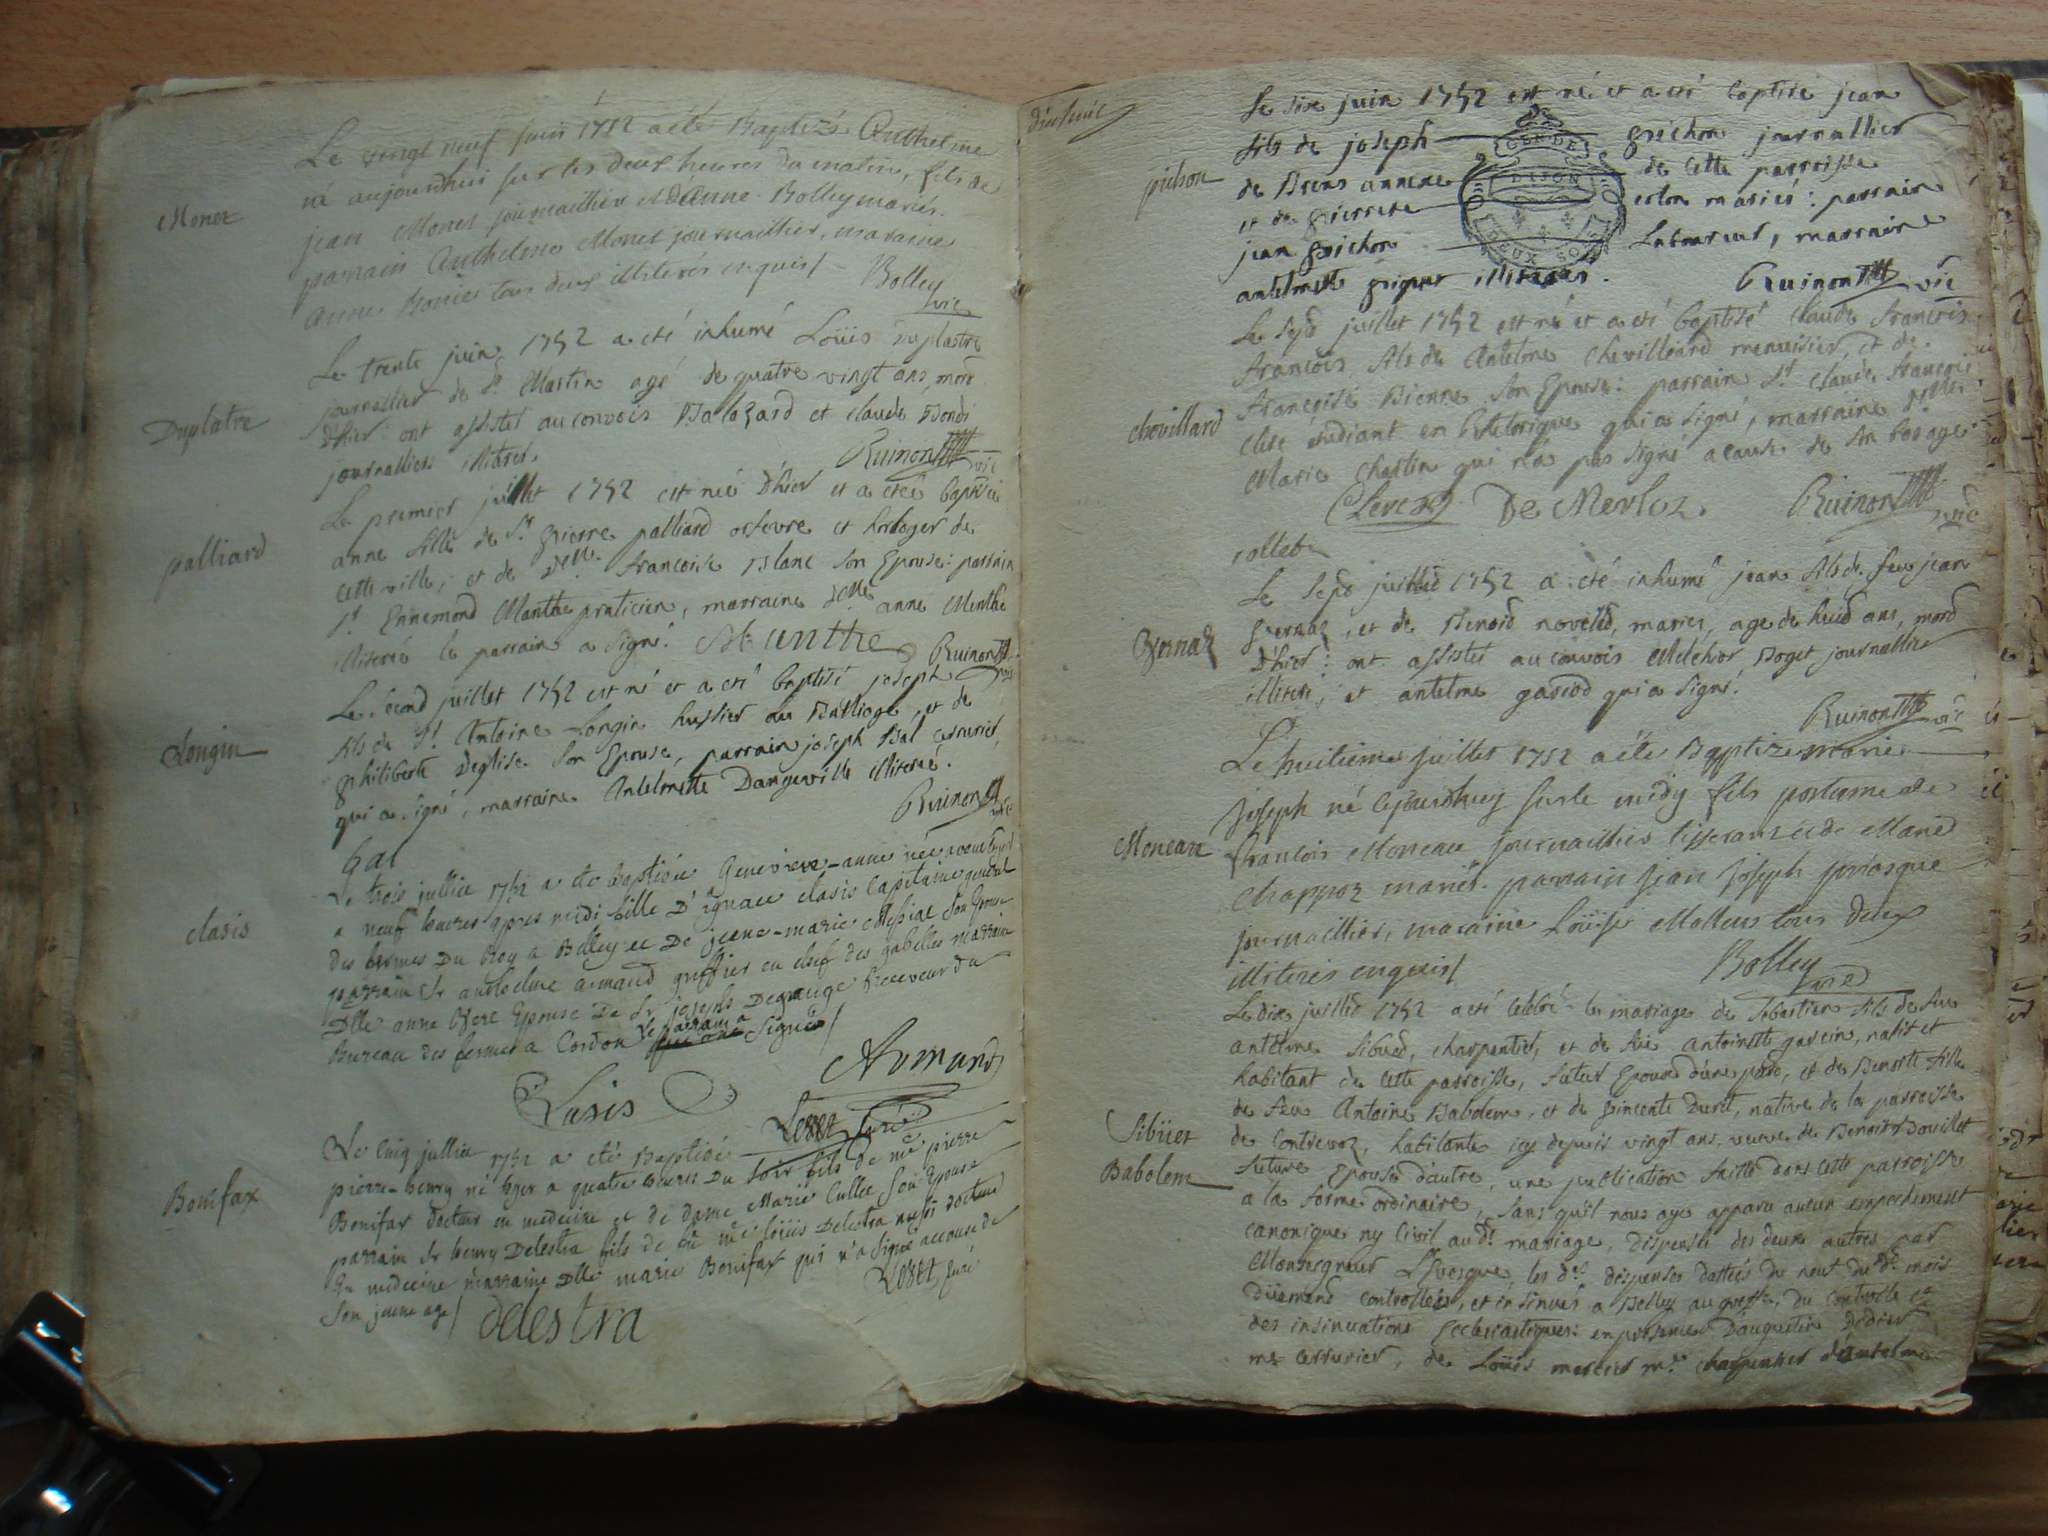 Le vingt neuf juin 1752 a été Baptizé Anthelme
né aujourdhuy sur les deux heures du matin, fils de
Monet
jean Monet journaillier et d'anne Bolley mariés.
parrain Anthelme Monet journaillier, maraine
anne Bonier tous deux illiterés enquis/ Bolley
vic
Le trente juin 1752 a eté inhumé Loüis Duplastre
journallier de St. Martin agé de quatre vingt ans, mord
Duplatre
d'hier: ont assisté au convois Balazard et claude Bondi
journalliers illiterés.
Ruinon vic
Le premier juillet 1752 est née d'hier et a eteé baptisée
anne fille de Sr. pierre palliard orfevre et horloger de
palliard
cette ville, et de Delle. francoise Blanc son Epouse: parrain
Sr. Ennemond Manthe praticien, marraine delle anne Menthe
illiterée le parrain a signé. Manthe Ruinon
vic
Le second juillet 1752 est né et a eté baptisé joseph
fils de Sr. Antoine Longin hussier au Balliage, et de
Longin
philiberte Deglise son Epouse, parrain joseph Bal serrurier,
qui a signé, marraine Antelmette Dangeville illiterée.
Ruinon
vic
bal
Le trois juillie 1752 a ete baptisée Genevieve-anne née avanthyer
a neuf heures apres midi fille D'ignace clasis Capitaine general
clasis
des fermes Du Roy a Belley et De jeane-marie Messiae son Epouse
parrain Sr anthelme armand greffier en chef des gabelles marraine
Dlle anne Epouse De Sr joseph Degrange Receveur du
Bureau des fermes a Cordon Le parrain a signé/
Clasis Armand
Lezet curé
Le Cinq jullie 1752 a eté Baptisé
pierre-henry né hyer a quatre heures Du soir fils de me pierre
Bonifax
Bonifax docteur en medecine et de dame Marie Cullet son Epouse
parrain Sr henry Delestra fils de feu me loüis Delestra aussi docteur
En medecine marraine Dlle marie Bonifax qui n'a signé accause de
son jeune age/ delestra Lezet curé
Le six juin 1752 est né et a eté baptisé jean
fils de joseph pichon journallier
pichon
de Brens annexe de cette parroisse
GEN DE
DIJON
DEUX SOLS
et de pierrete mariés: parrain
jean pichon Laboureur, marraine
antelmette illiterés.
Ruinon vic
Le sepd juillet 1752 est né et a eté baptisé claude francois
francois fils de Antelme chevilliard menuisier, et de
francoise Bienne son Epouse: parrain Sr. claude francois
chevillard
clerc etudiant en Rhetorique qui a signé, marraine delle
Marie chastin qui n'a pas signé a cause de son bas age
Clerc De Merloz Ruinon
vic
rollet
Le sepd juillied 1752 a eté inhumé jean fils de feu jean
pernaz, et de Benoid noveled, mariés, age de huid ans, mord
d'hier: ont assisté au convois Melchior Boget journallier
illiteré, et antelme gascod qui a signé.
Ruinon vic
Le huitieme juillet 1752 a été Baptizé marie
Joseph né cejourdhuy sur le midy fils postume de
Moneau
francois Moneau journaillier tisserand et de Marie
chappoz mariés. parrain jean joseph
journaillier, maraine Loüise Mollen tous deux
illiterés enquis/ Bolley
vic
Le dix juillied 1752 a eté celebré le mariage de sebastien fils de feu
antelme Sibued, charpentier, et de feüe antoinette gascin, natif et
habitant de cette parroisse, futur Epoux d'une pard, et de Benoite fille
de feu Antoine Babolem, et de pincente Duret, native de la parroisse
Sibüet
de Contrevoz, habitante icy depuis vingt ans, veuve de Benoit Douillet
Babolem
future Epouse d'autre, une publication faitte dans cette parroisse
a la forme ordinaire, sans qu'il nous aye apparu aucun empechement
canonique ny civil audt. mariage, Dispensés des deux autres par
Monseigneur L'Evesque, les des. dispenses dattées du neuf du dt. mois
Düement controllées, et insinuées a Belley au greffe du controlle et
des insinuations Ecclesiastiques: en presence D'augustin Didier
me serrurier, de Loüis mercier me. charpentier d'antelme